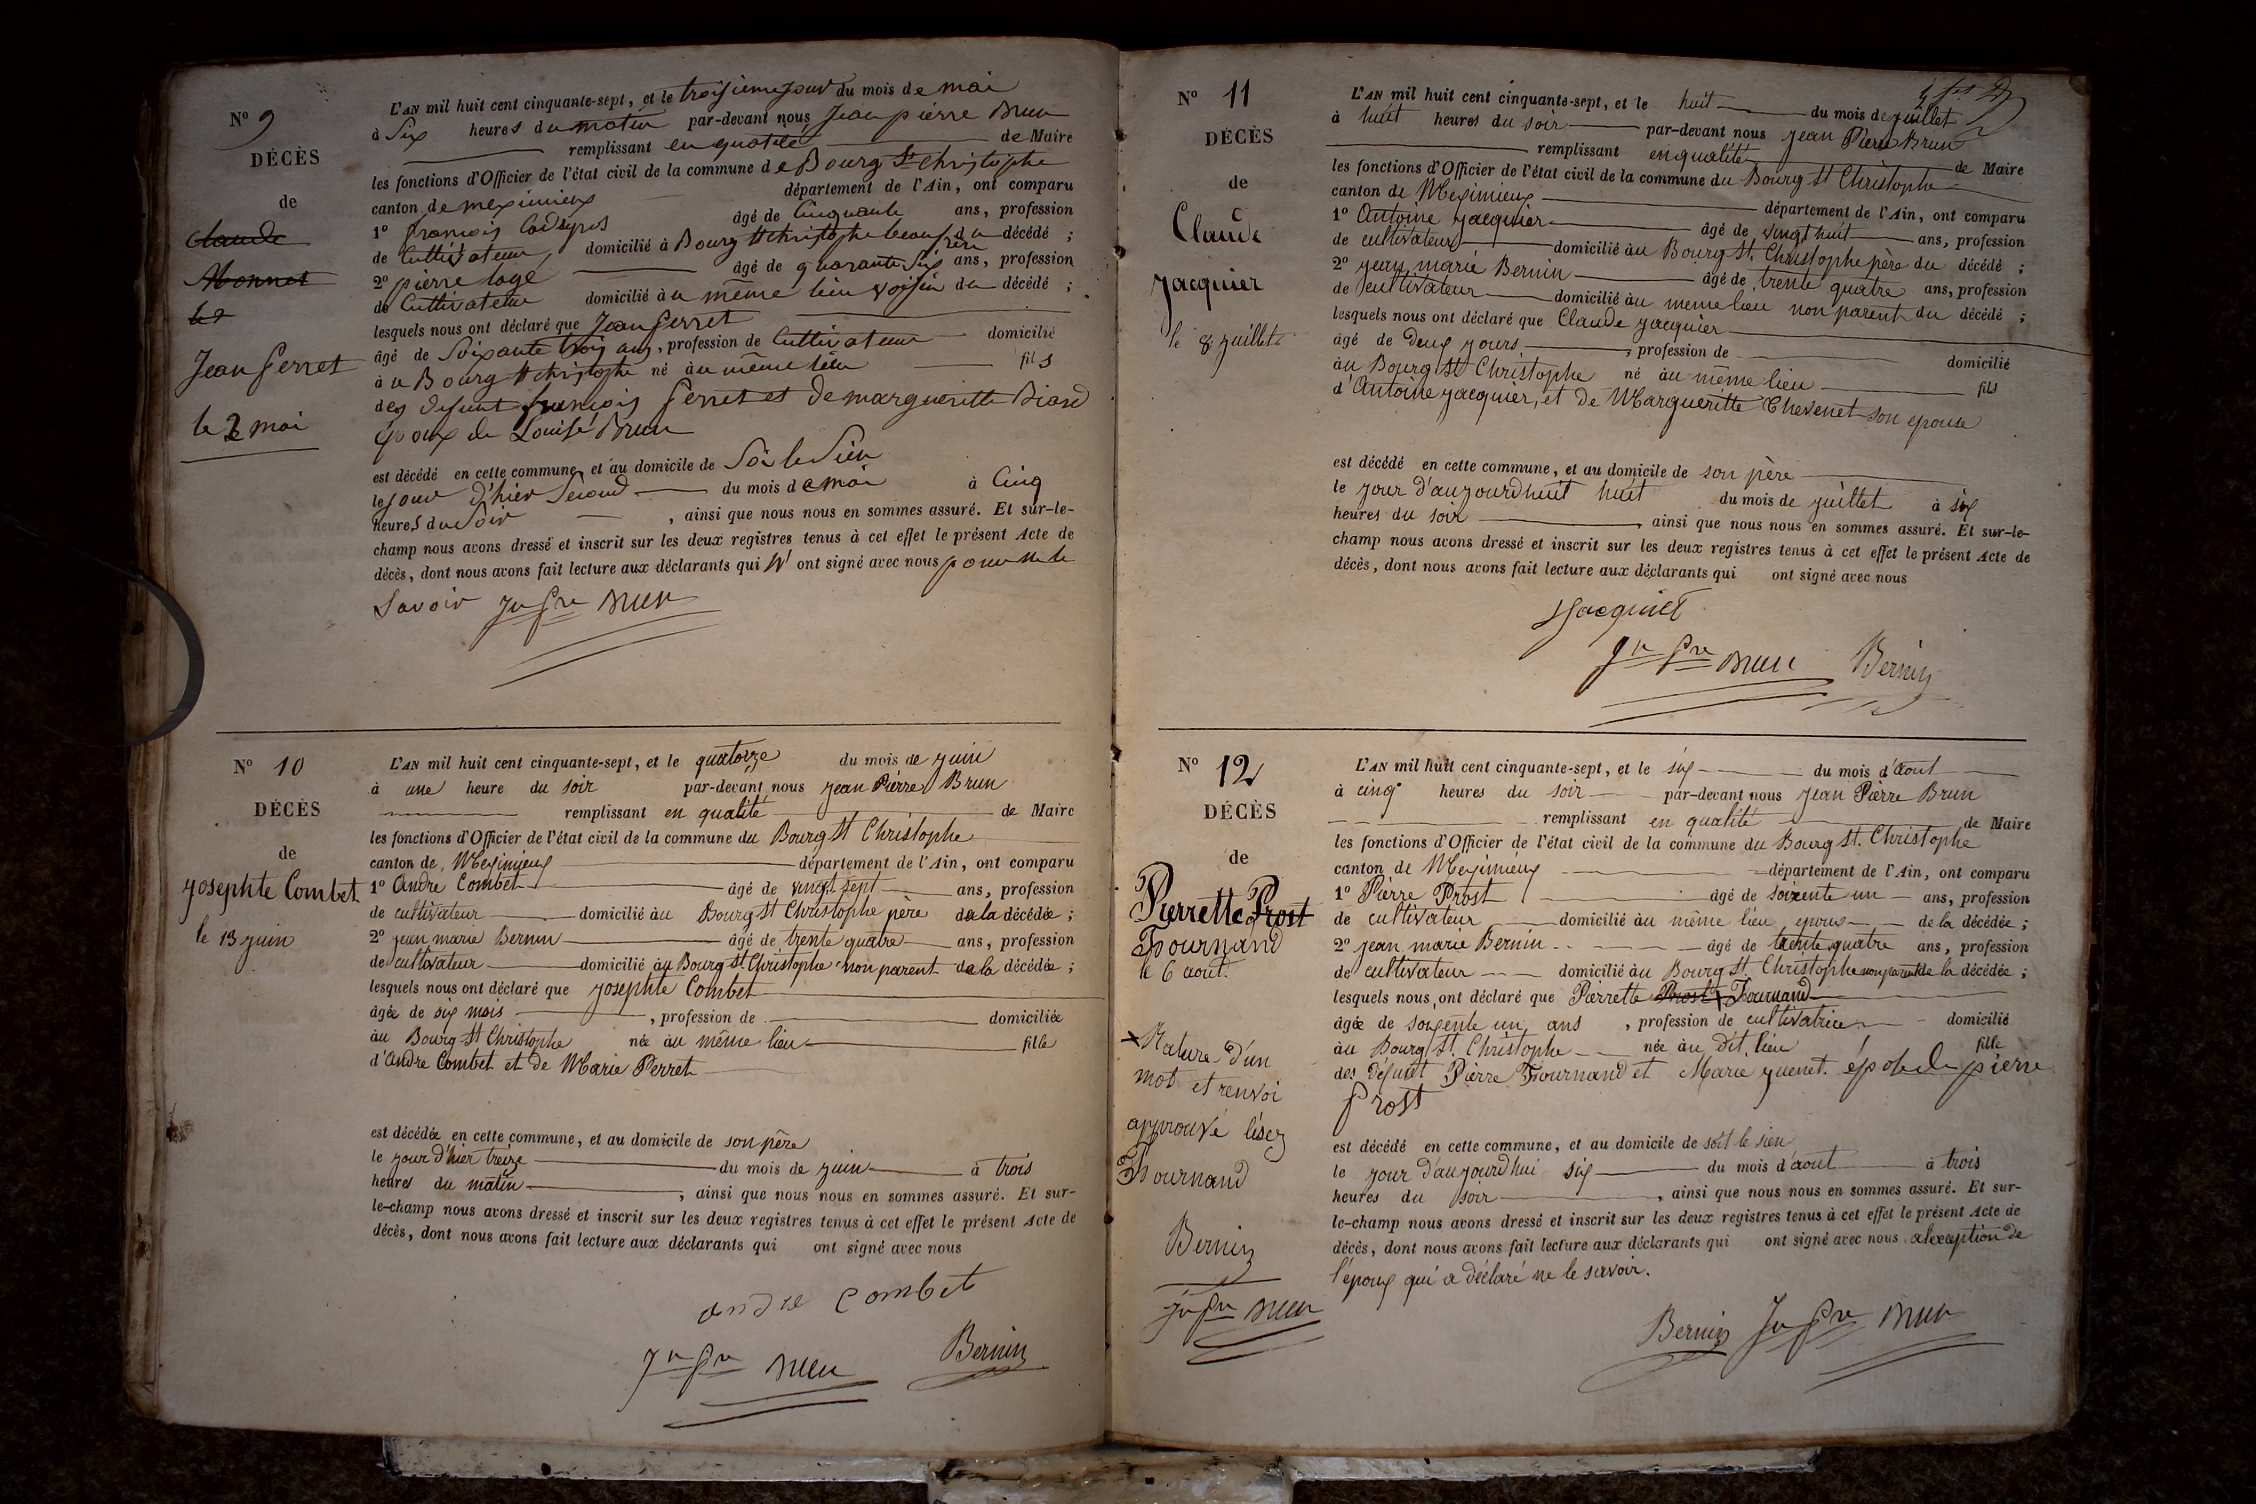 N° 9
DÉCÈS
de
Claude
Monnet
le 2
Jean Perret
le 2 mai
L'AN mil huit cent cinquante-sept, et le troisieme jour du mois de mai
à Six heures du matin par-devant nous Jean pierre Brun
remplissant en qualité de Maire
les fonctions d'Officier de l'état civil de la commune de Bourg St christophe
canton de meximieux département de l'Ain, ont comparu
1° françois âgé de Cinquante ans, profession
de Cultivateur domicilié à Bourg St christophe beau frère du décédé ;
2° pierre loge âgé de quarante Six ans, profession
de Cultivateur domicilié au même lieu voisin du décédé ;
lesquels nous ont déclaré que Jean Perret
âgé de Soixante trois ans, profession de Cultivateur domicilié
au Bourg St christophe né au même lieu fils
des defunt françois Perret et de margueritte
époux de Louise Brun
est décédé en cette commune, et au domicile de Soi le Sien
le jour d'hier Second du mois de mai à Cinq
heures du Soir , ainsi que nous nous en sommes assuré. Et sur-le-
champ nous avons dressé et inscrit sur les deux registres tenus à cet effet le présent Acte de
décès, dont nous avons fait lecture aux déclarants qui n' ont signé avec nous pour ne le
Savoir Jn Pre Brun
N° 10
DÉCÈS
de
Josephte Combet
le 13 juin
L'AN mil huit cent cinquante-sept, et le quatorze du mois de juin
à une heure du soir par-devant nous Jean Pierre Brun
remplissant en qualité de Maire
les fonctions d'Officier de l'état civil de la commune du Bourg St Christophe
canton de Meximieux département de l'Ain, ont comparu
1° Andre Combet âgé de vingt sept ans, profession
de cultivateur domicilié au Bourg St Christophe père de la décédée ;
2° jean marie Bernin âgé de trente quatre ans, profession
de cultivateur domicilié au Bourg St Christophe non parent de la décédée ;
lesquels nous ont déclaré que Josephte Combet
âgée de six mois , profession de domiciliée
au Bourg St Christophe née au même lieu fille
d'Andre Combet et de Marie Perret
est décédée en cette commune, et au domicile de son père
le jour d'hier treize du mois de juin à trois
heures du matin , ainsi que nous nous en sommes assuré. Et sur-
le-champ nous avons dressé et inscrit sur les deux registres tenus à cet effet le présent Acte de
décès, dont nous avons fait lecture aux déclarants qui ont signé avec nous
andre combet
Jn Pre Brun Bernin
N° 11
DÉCÈS
de
Claude
Jacquier
le 8 juillet
L'AN mil huit cent cinquante-sept, et le huit du mois de juillet
à huit heures du soir par-devant nous Jean Pierre Brun
remplissant en qualité de Maire
les fonctions d'Officier de l'état civil de la commune du Bourg St Christophe
canton de Meximieux département de l'Ain, ont comparu
1° Antoine Jacquier âgé de vingt huit ans, profession
de cultivateur domicilié au Bourg St. Christophe père du décédé ;
2° jean marie Bernin âgé de trente quatre ans, profession
de cultivateur domicilié au meme lieu non parent du décédé ;
lesquels nous ont déclaré que Claude Jacquier
âgé de deux jours , profession de domicilié
au Bourg St Christophe né au même lieu fils
d'Antoine Jacquier, et de Margueritte Chevenet son epouse
est décédé en cette commune, et au domicile de son père
le jour d'aujourdhuit huit du mois de juillet à six
heures du soir , ainsi que nous nous en sommes assuré. Et sur-le-
champ nous avons dressé et inscrit sur les deux registres tenus à cet effet le présent Acte de
décès, dont nous avons fait lecture aux déclarants qui ont signé avec nous
Jacquier
Jn Pre Brun Bernin
N° 12
DÉCÈS
de
Pierrette Prost
Tournand
le 6 aout.
Rature d'un
mot et renvoi
approuvé lisez
Tournand
Bernin
Jn Pre Brun
L'AN mil huit cent cinquante-sept, et le six du mois d'aout
à cinq heures du soir par-devant nous Jean Pierre Brun
remplissant en qualité de Maire
les fonctions d'Officier de l'état civil de la commune du Bourg St. Christophe
canton de Meximieux département de l'Ain, ont comparu
1° Pierre Prost âgé de soixente un ans, profession
de cultivateur domicilié au même lieu epoux de la décédée ;
2° jean marie Bernin âgé de trente quatre ans, profession
de cultivateur domicilié au Bourg St. Christophe non parent de la décédée ;
lesquels nous ont déclaré que Pierrette Prost Tournand
âgée de soixente un ans , profession de cultivatrice domicilié
au Bourg St. Christophe née au dit lieu fille
des défunt Pierre Tournand et Marie épouse de pierre
Prost
est décédé en cette commune, et au domicile de soit le sien
le jour d'aujourd'hui six du mois d'aout à trois
heures du soir , ainsi que nous nous en sommes assuré. Et sur-
le-champ nous avons dressé et inscrit sur les deux registres tenus à cet effet le présent Acte de
décès, dont nous avons fait lecture aux déclarants qui ont signé avec nous a lexception de
l'époux qui a déclaré ne le savoir.
Bernin Jn Pre Brun